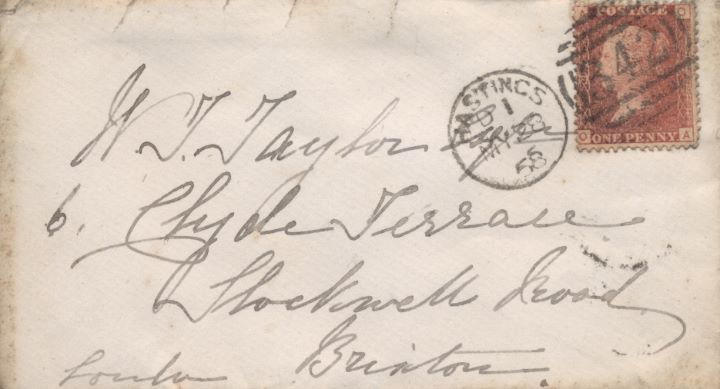 POSTAGE
342
ONE PENNY
O A
HASTINGS
1
MY 28
58
W. T. Taylor
6. Clyde Terrace
Stockwell Road
Brixton
London